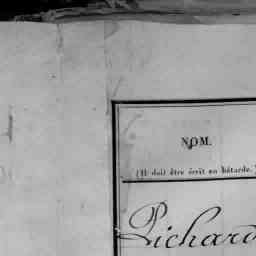 NOM.
(Il doit être écrit en bâtarde.)
Richard